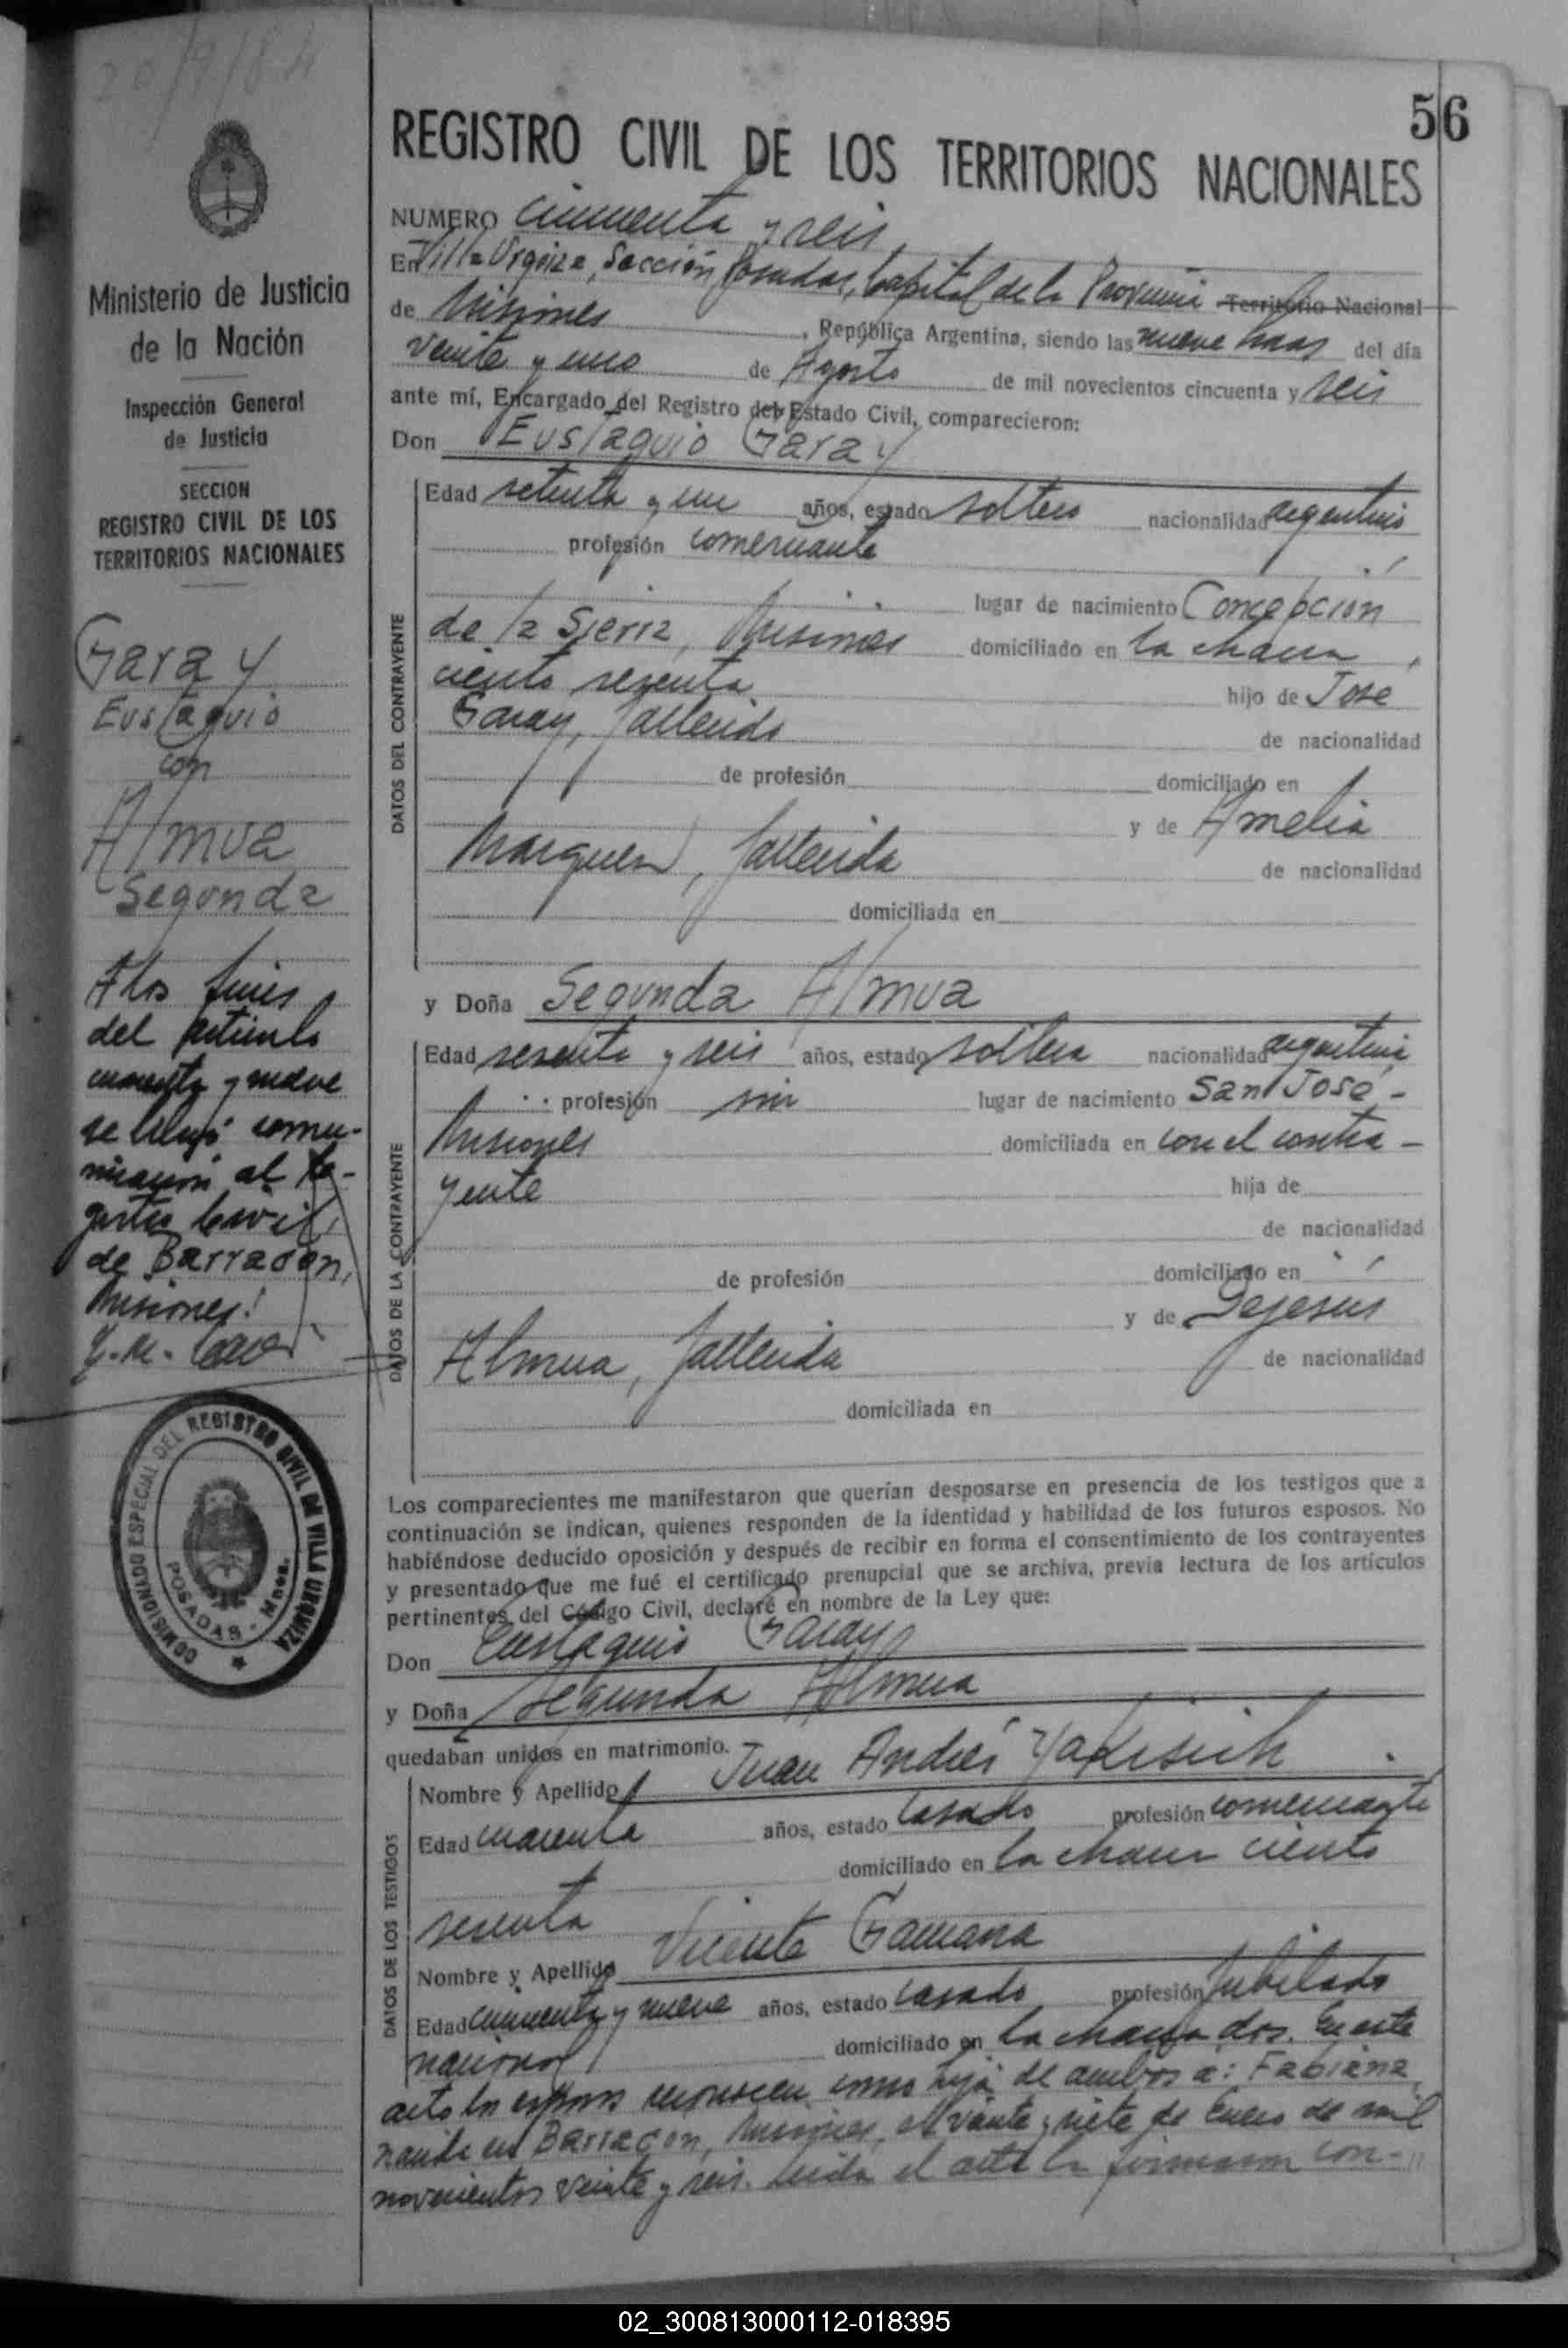 20/9/84
Ministerio de Justicia
de la Nación
Inspección General
de Justicia
SECCION
REGISTRO CIVIL DE LOS
TERRITORIOS NACIONALES
Garay
Eustaquio
con
Almua
Segunda
A los fines
del artículo
cuarenta y nueve
se libró comu-
nicación al Re-
gistro Civil,
de Barracón,
Misiones.
COMISIONADO ESPECIAL DEL REGISTRO CIVIL DE VILLA URQUIZA
POSADAS - Mnes.
56
REGISTRO CIVIL DE LOS TERRITORIOS NACIONALES
NUMERO cincuenta y seis,
En Villa Urquiza, Sección Posadas, Capital de la Provincia Territorio Nacional
de Misiones, República Argentina, siendo las nueve horas del día
veinte y uno de Agosto de mil novecientos cincuenta y seis
ante mí, Encargado del Registro del Estado Civil, comparecieron:
Don Eustaquio Garay
DATOS DEL CONTRAYENTE
Edad setenta y un años, estado soltero nacionalidad argentino
profesión comerciante
lugar de nacimiento Concepción
de la Sierra, Misiones domiciliado en la chacra
ciento sesenta hijo de José
Garay, fallecido de nacionalidad
de profesión domiciliado en
y de Amelia
Marquez, fallecida de nacionalidad
domiciliada en
y Doña Segunda Almua
DATOS DE LA CONTRAYENTE
Edad sesenta y seis años, estado soltera nacionalidad argentina
profesión sin lugar de nacimiento San José -
Misiones domiciliada en con el contra-
yente hija de
de nacionalidad
de profesión domiciliado en
y de Dejesus
Almua, fallecida de nacionalidad
domiciliada en
Los comparecientes me manifestaron que querían desposarse en presencia de los testigos que a
continuación se indican, quienes responden de la identidad y habilidad de los futuros esposos. No
habiéndose deducido oposición y después de recibir en forma el consentimiento de los contrayentes
y presentado que me fué el certificado prenupcial que se archiva, previa lectura de los artículos
pertinentes del Código Civil, declaré en nombre de la Ley que:
Don Eustaquio Garay
y Doña Segunda Almua
quedaban unidos en matrimonio.
DATOS DE LOS TESTIGOS
Nombre y Apellido Juan Andrés Yakisich
Edad cuarenta años, estado casado profesión comerciante
domiciliado en la chacra ciento
sesenta
Nombre y Apellido Vicente Gamarra
Edad cincuenta y nueve años, estado casado profesión Jubilado
nacional domiciliado en la chacra dos. En este
acto los esposos reconocen como hija de ambos a: Fabiana,
nacida en Barracón, Misiones, el veinte y siete de Enero de mil
novecientos veinte y seis. Leida el acta la firmaron con-
02_300813000112-018395